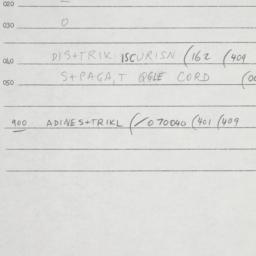 020
030 0
040 DISTRIK ISCURISN (162 (409
050 S+PAGA,T CORD (00
900 ADINES+TRIKL (/070040 (401 (409